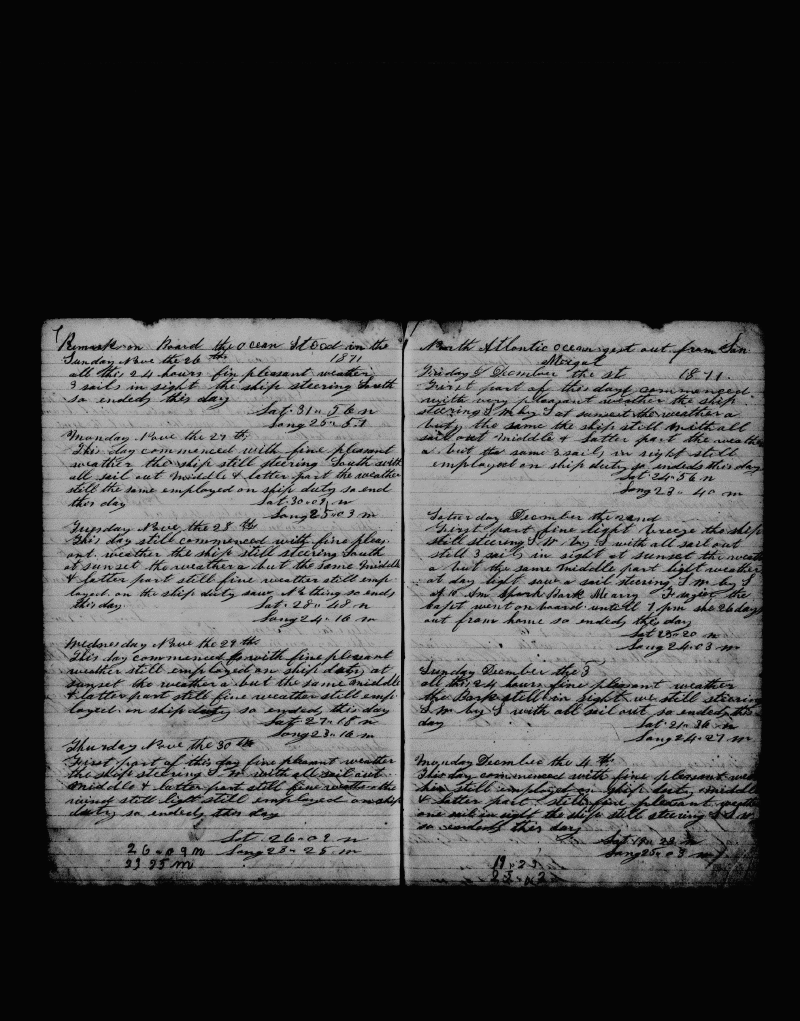 Remark on Board the ocean Steed in the
Sunday Nove the 26 th 1871
all this 24 hours fin pleasant weather
3 sails in sight the ship steering South
so endeds this day
Lat 31 " 56 n
Long 25 " 51
Monday Nove the 27 th
This day commenced with fine pleasant
weather the ship still steering South with
all sail out middle & latter part the weather
still the same employed on ship duty so end
this day Lat 30 " 09 n
Long 25 " 03 m
Tuesday Nove the 28 th
This day still commenced with fine pleas
ant weather the ship still steering South
at sunset the weather a but the same middle
& latter part still fine weather still emp
loyed on the ship duty saw N thing so ends
this day Lat 28 " 48 n
Long 24 " 16 m
Wednesday Nove the 29 th
This day commenced with fine pleasant
weather still employed on ship duty at
sunset the weather a but the same middle
& latter part still fine weather still emp
loyed on ship duty so endeds this day
Lat 27 " 18 n
Long 23 " 16 m
Thursday Nove the 30 th
First part of this day fine pleasant weather
the ship steering S m with all sail out
middle & latter part still fine weather the
wind still light still employed on ship
duty so endeds this day
Lat 26 " 09 n
26 " 09 n Long 23 " 25 m
23 25 m
North Atlantic ocean out from San
Friday December the st 1871
First part of this day commenced
with very pleasant weather the ship
steering S m by S at sunset the weather a
but the same the ship still with all
sail out middle & latter part the weather
a but the same 3 sails in sight still
employed on ship duty so endeds this day
Lat 24 " 56 n
Long 23 " 40 m
Saturday December the 2and
First part fine light breeze the ship
still steering S W by S with all sail out
still 3 sails in sight at sunset the weath
a but the same middle part light weather
at day light saw a sail steering S m by S
at 10 Am Spork Bark the
capt went on board untill 1 pm she 26 days
out from home so endeds this day
Lat 23 " 20 n
Long 24 " 03 m
Sunday December the 3
all this 24 hours fine pleasant weather
the Bark still in sight we still steering
S m by S with all sail out so endeds this
day Lat 21 " 36 n
Long 24 " 27 m
Monday December the 4 th
This day commenced with fine pleasant wea
ther still employed on ship duty middle
& latter part still fine pleasant weathe
one sail in sight the ship still steering S S W
so endeds this day
Lat 19 " 23 n
Long 25 " 03 m
19 " 23